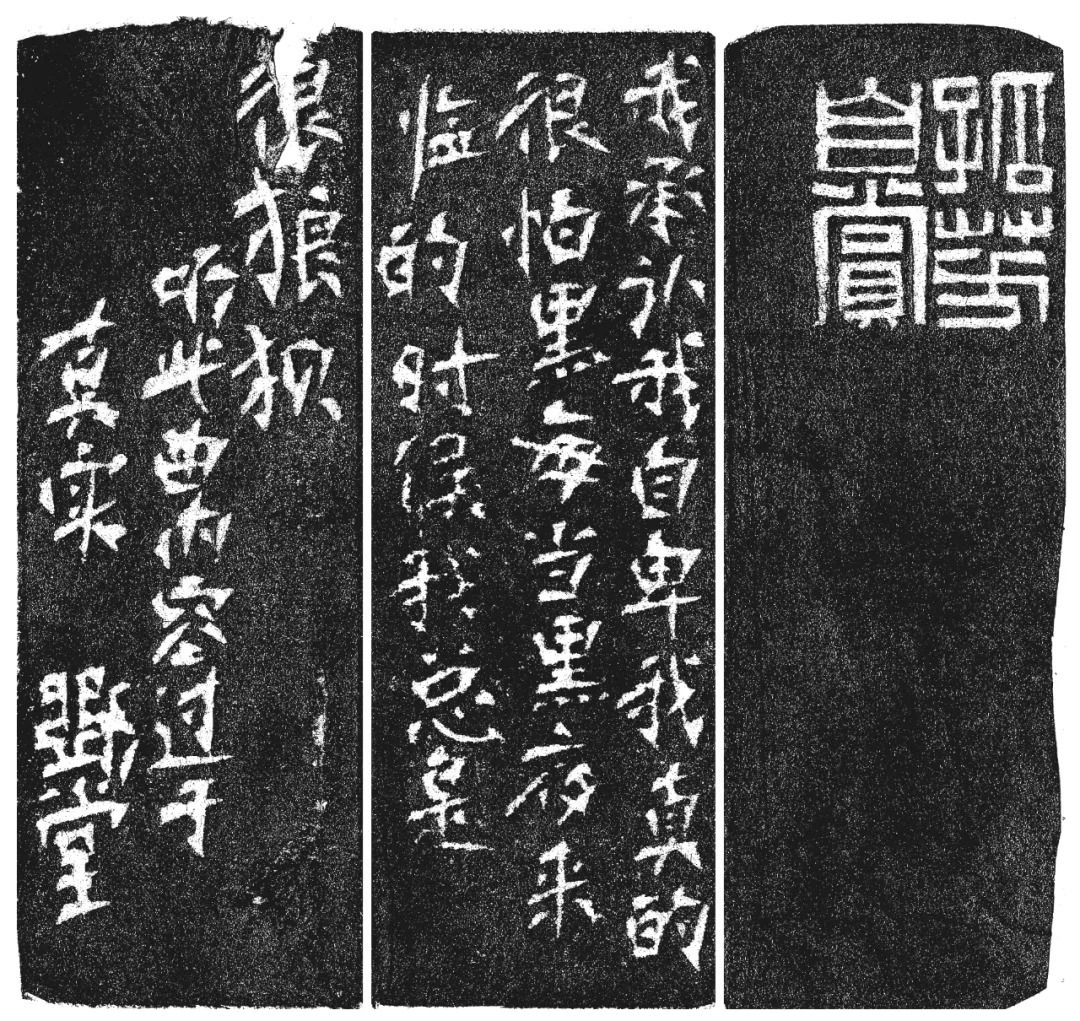 孤芳
自赏
我承认我自卑我真的
很怕黑每当黑夜来
临的时候我总是
很狼狈
听此曲内容过于
真实 堂